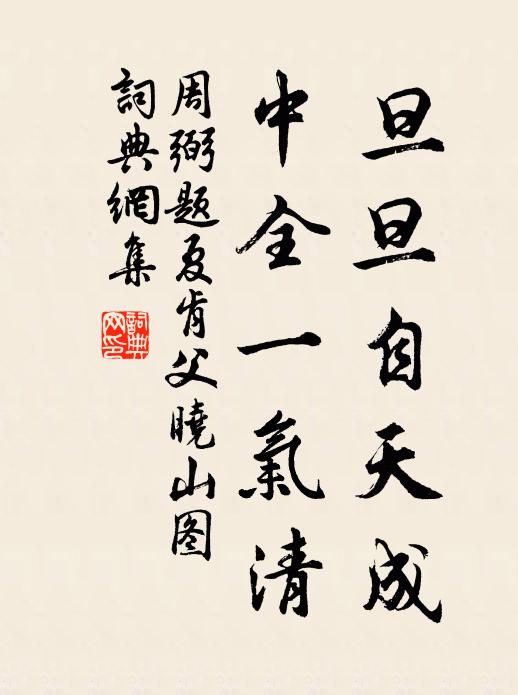 旦旦自天成
中全一氣清
周弼题夏肯父曉山图
詞典網集
詞典網印